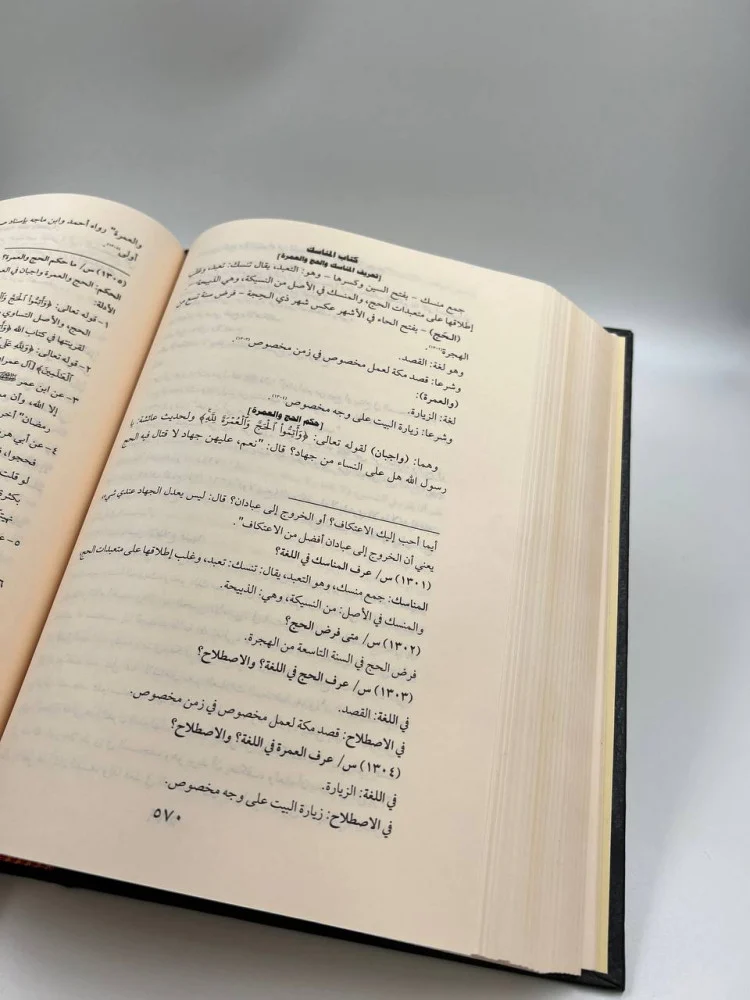 كتاب المناسك
[تعريف المناسك والحج والعمرة]
جمع منسك - بفتح السين وكسرها - وهو: التعبد، يقال تنسك: تعبد، وغلب
إطلاقها على متعبدات الحج، والمنسك في الأصل من النسيكة، وهي الذبيحة-
(الحَج) - بفتح الحاء في الأشهر عكس شهر ذي الحجة - فرض سنة تسع من
الهجرة(١٣٠٢).
وهو لغة: القصد.
وشرعا: قصد مكة لعمل مخصوص في زمن مخصوص(١٣٠٣).
(والعمرة):
لغة: الزيارة.
وشرعا: زيارة البيت على وجه مخصوص(١٣٠٤).
[حكم الحج والعمرة]
وهما: (واجبان) لقوله تعالى: ﴿وَأَتِمُّواْ ٱلۡحَجَّ وَٱلۡعُمۡرَةَ لِلَّهِ﴾ ولحديث عائشة: يا
رسول الله هل على النساء من جهاد؟ قال: "نعم، عليهن جهاد لا قتال فيه الحج
أيما أحب إليك الاعتكاف؟ أو الخروج إلى عبادان؟ قال: ليس يعدل الجهاد عندي شيء
يعني أن الخروج إلى عبادان أفضل من الاعتكاف".
(١٣٠١) س/ عرف المناسك في اللغة؟
المناسك: جمع منسك، وهو التعبد، يقال: تنسك: تعبد، وغلب إطلاقها على متعبدات الحج
والمنسك في الأصل: من النسيكة، وهي: الذبيحة.
(١٣٠٢) س/ متى فرض الحج؟
فرض الحج في السنة التاسعة من الهجرة.
(١٣٠٣) س/ عرف الحج في اللغة؟ والاصطلاح؟
في اللغة: القصد.
في الاصطلاح: قصد مكة لعمل مخصوص في زمن مخصوص.
(١٣٠٤) س/ عرف العمرة في اللغة؟ والاصطلاح؟
في اللغة: الزيارة.
في الاصطلاح: زيارة البيت على وجه مخصوص.
٥٧٠
والعمرة" رواه أحمد وابن ماجه بإسناد
أولى
(١٣٠٥) س/ ما حكم الحج والعمرة؟
الحكم: الحج والعمرة واجبان في
الأدلة:
١- قوله تعالى: ﴿وَأَتِمُّواْ ٱلۡحَجَّ
الحج، والأصل التساوي
لقرينتها في كتاب الله
٢- قوله تعالى: ﴿وَلِلَّهِ عَلَى
ٱلۡعَٰلَمِينَ﴾ [آل عمران
٣- عن ابن عمر
إلا الله، وأن
رمضان" أخر
٤- عن أبي هر
فحجوا،
لو قلت
بكثرة
٥-